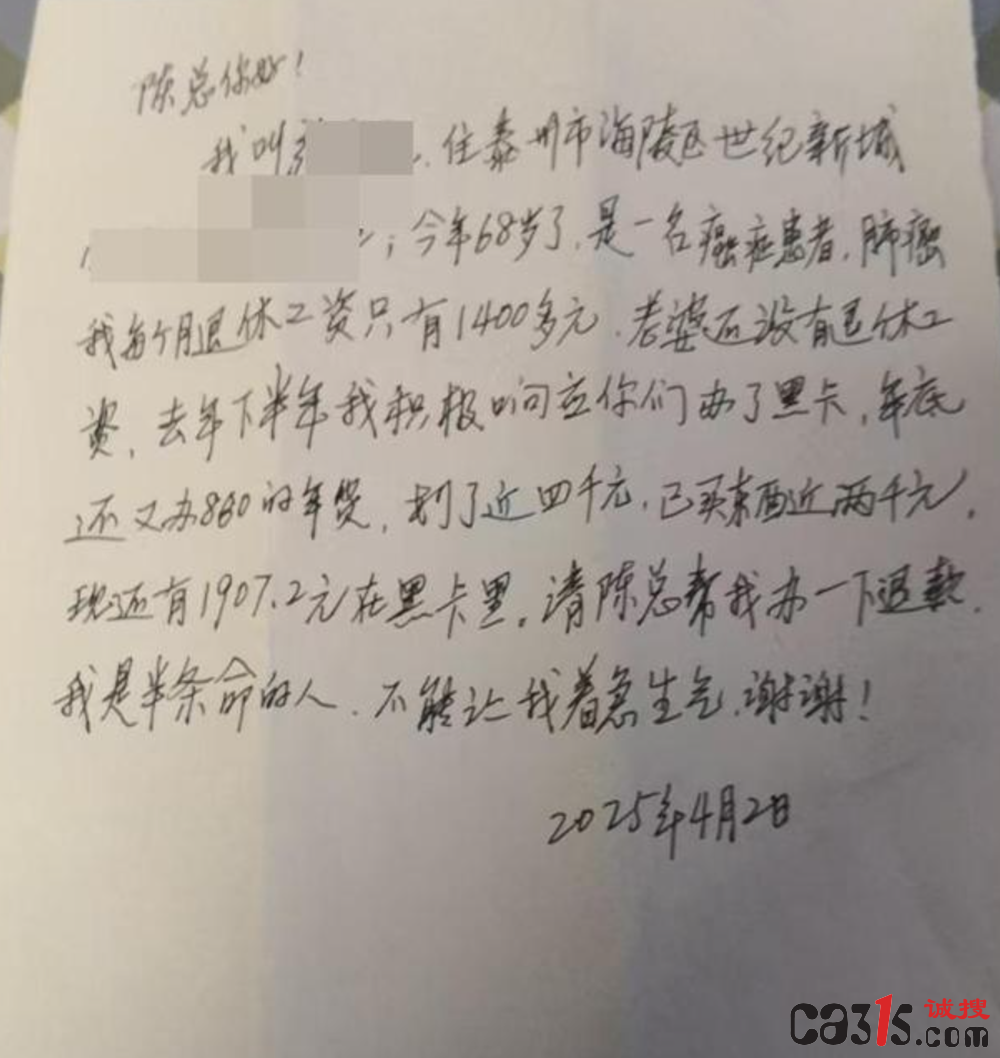 陈总你好！
我叫 住泰州市海陵区世纪新城
；今年68岁了，是一名癌症患者，肺癌
我每个月退休工资只有1400多元，老婆还没有退休工
资，去年下半年我积极响应你们办了黑卡，年底
还又办860的年货，划了近四千元，已买东西近两千元，
现还有1907.2元在黑卡里。请陈总帮我办一下退款，
我是半条命的人，不能让我着急生气，谢谢！
2025年4月2日
诚搜
ca315.com